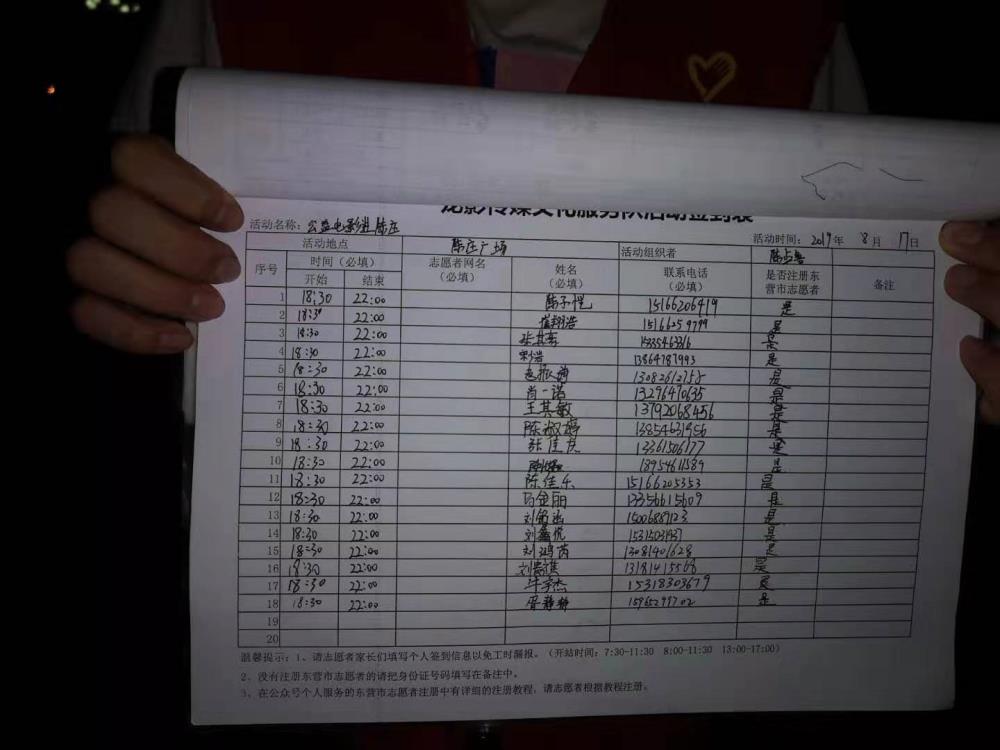 龙影传媒文化服务队活动签到表
活动名称：公益电影进陈庄 活动时间：2019年 8月 17日
活动地点 陈庄广场 活动组织者
序号 时间（必填） 志愿者网名（必填） 姓名（必填） 联系电话（必填） 是否注册东营市志愿者 备注
开始 结束
1 18:30 22:00 15166206419 是
2 18:30 22:00 崔翔浩 是
3 18:30 22:00 是
4 18:30 22:00 13864787993 是
5 18:30 22:00 是
6 18:30 22:00 肖一诺 13296470635 是
7 18:30 22:00 王其敏 13792068456 是
8 18:30 22:00 陈淑婷 13854631956 是
9 18:30 22:00 张佳 13361506177 是
10 18:30 22:00 18954611589 是
11 18:30 22:00 陈佳乐 15166205353 是
12 18:30 22:00 马金丽 13356615609 是
13 18:30 22:00 15006889123 是
14 18:30 22:00 刘鑫悦 是
15 18:30 22:00 刘鸿芮 13081401628 是
16 18:30 22:00 13181415568 是
17 18:30 22:00 牛宇杰 15318303679 是
18 18:30 22:00 是
19
20
温馨提示：1、请志愿者家长们填写个人签到信息以免工时漏报。（开站时间：7:30-11:30 8:00-11:30 13:00-17:00）
2、没有注册东营市志愿者的请把身份证号码填写在备注中。
3、在公众号个人服务的东营市志愿者注册中有详细的注册教程，请志愿者根据教程注册。